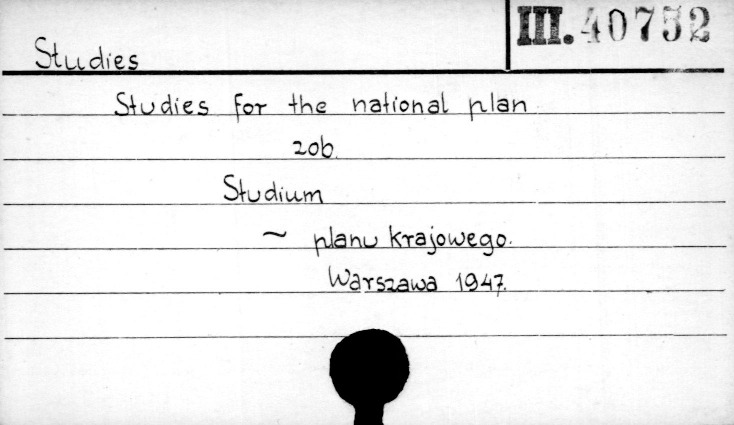 III. 40752
Studies
Studies for the national plan
zob.
Studium
~ planu krajowego.
Warszawa 1947.